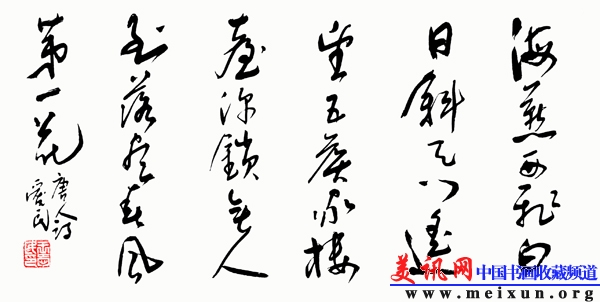 海燕西飛白
日斜天門遥
望五侯家樓
臺深鎖無人
到落尽春風
第一花
唐人詩
美讯网 中国书画收藏频道
www.meixun.org